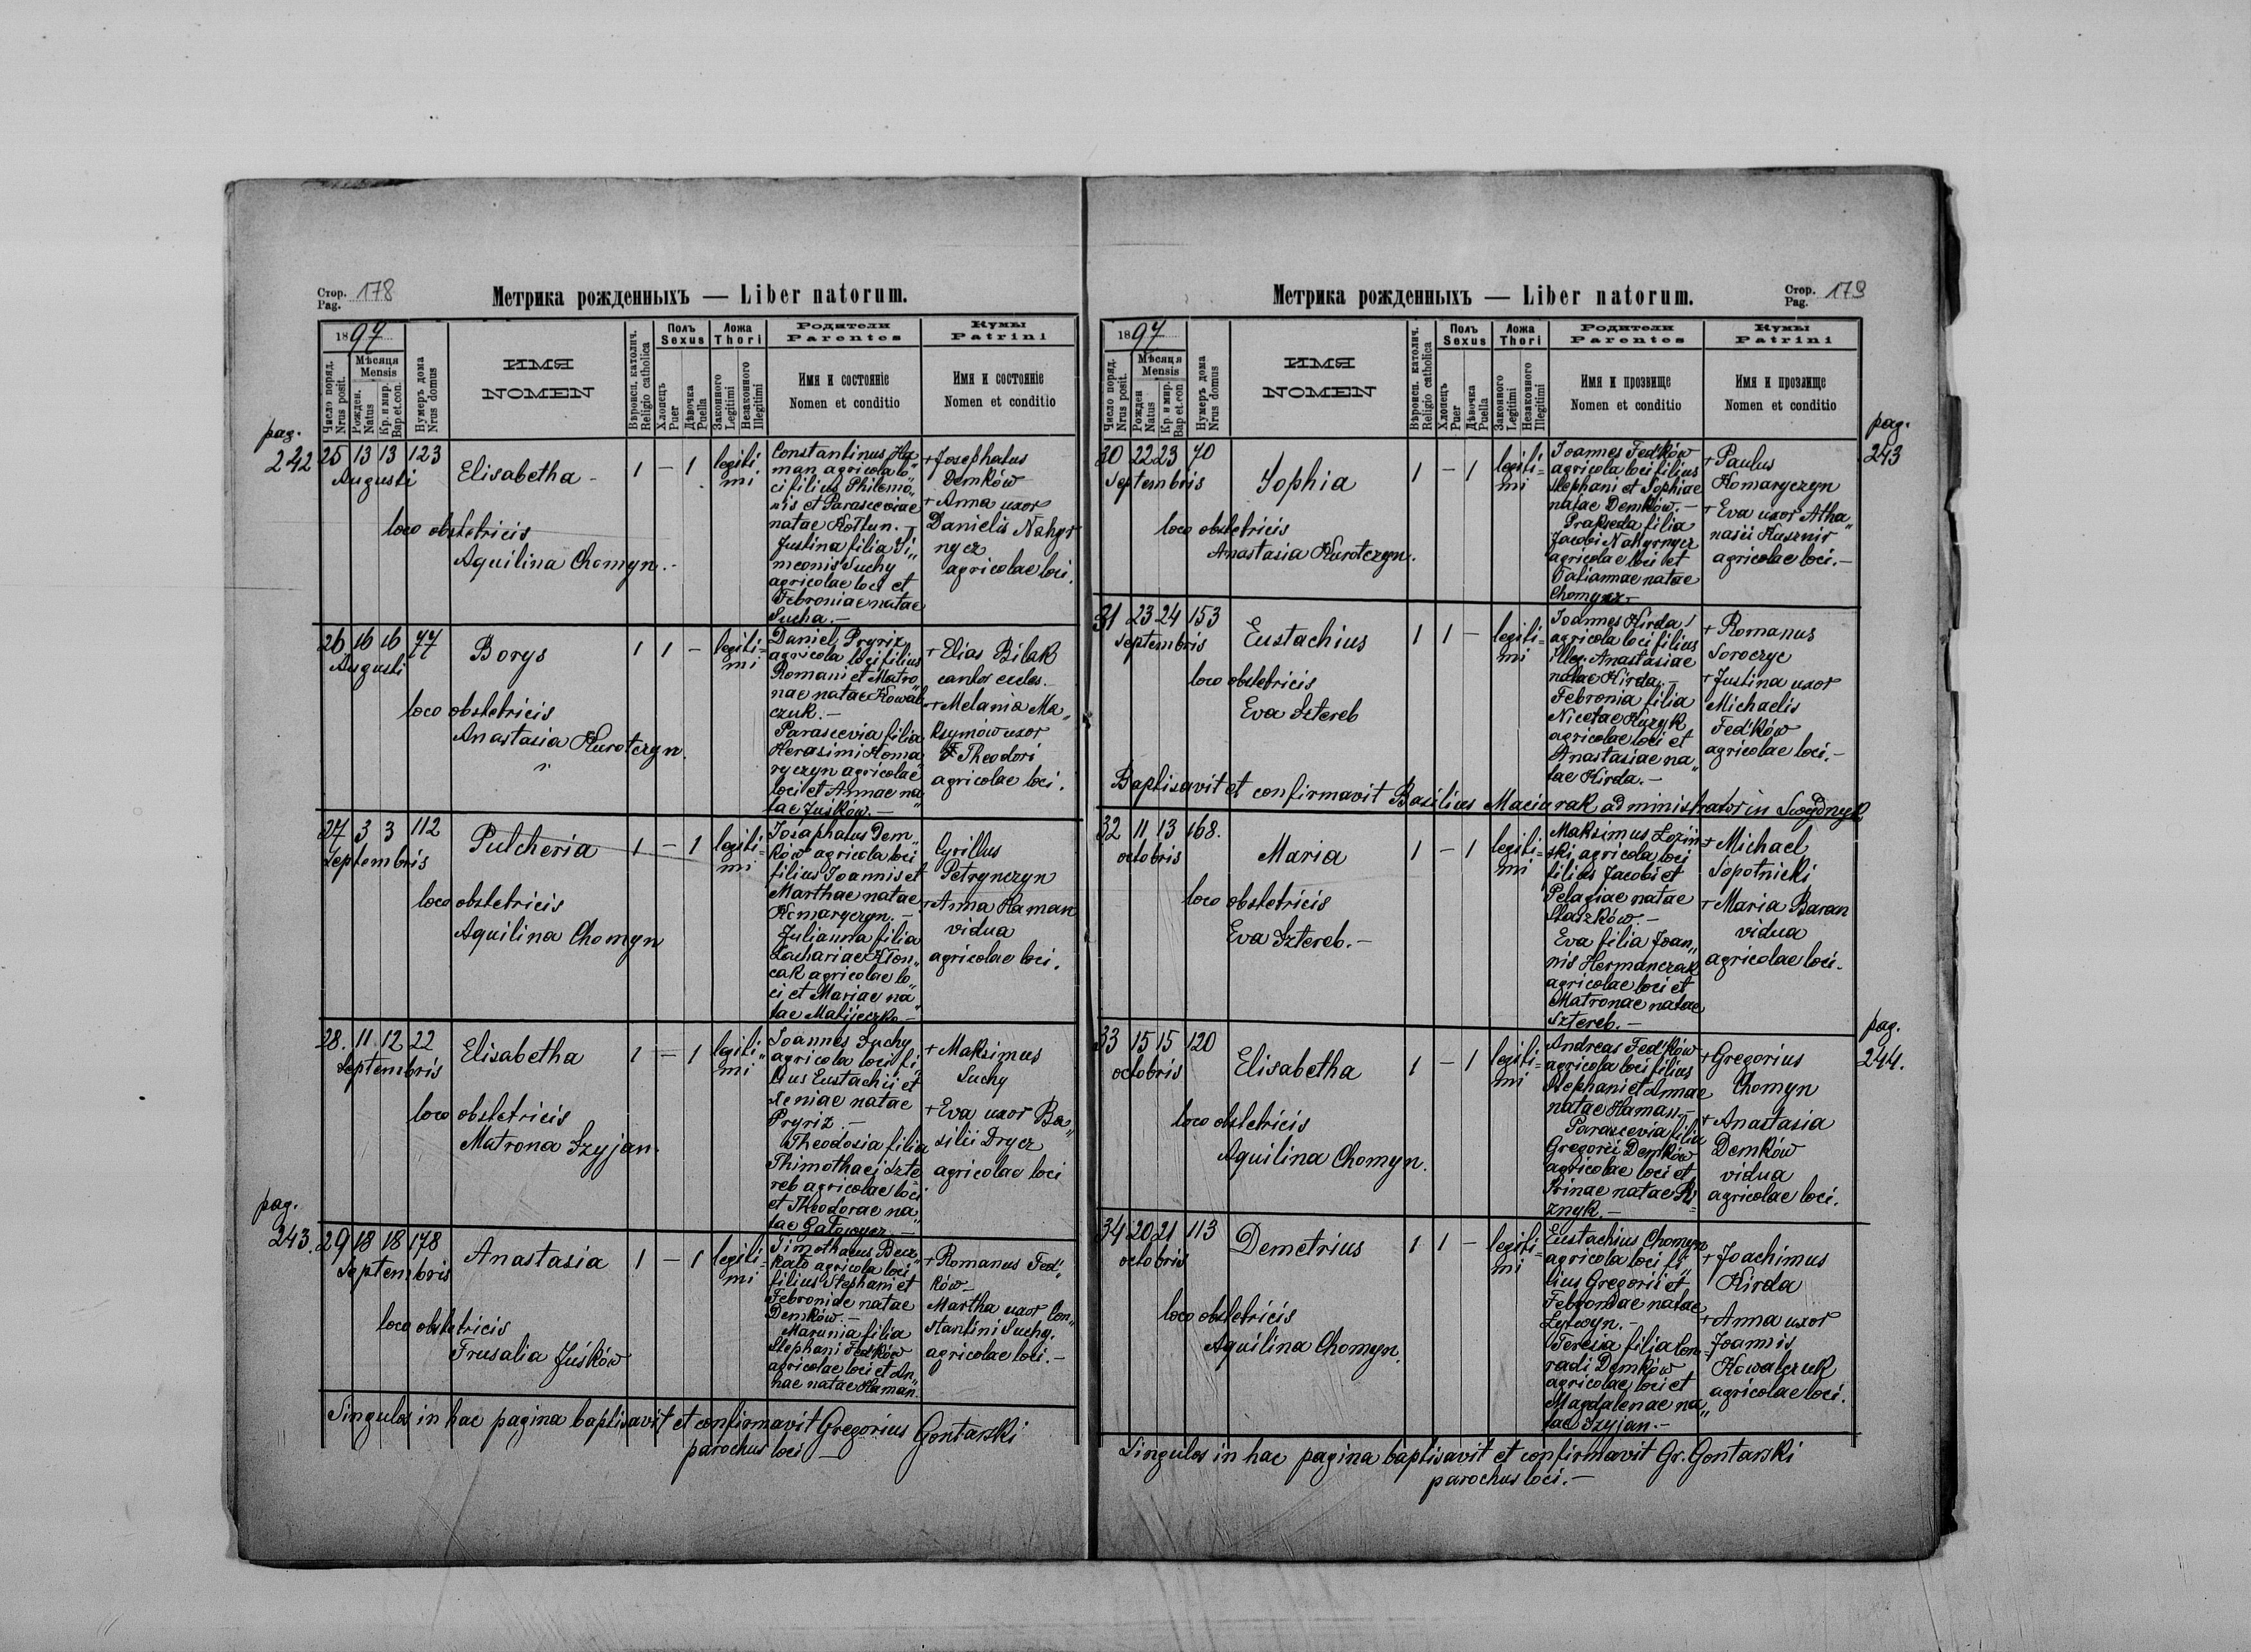 Стор. Pag. 178
Метрика рожденныхъ — Liber natorum.
1897
Число поряд. Nrus posit.
Мѣсяця Mensis
Рожден. Natus
Кр. и мир. Bap. et con.
Нумеръ дома Nrus domus
ИМЯ
NOMEN
Вѣроисп. католич. Religio catholica
Полъ Sexus
Хлопецъ Puer
Дѣвочка Puella
Ложа Thori
Законного Legitimi
Незаконного Illegitimi
Родители
Parentes
Имя и состояніе
Nomen et conditio
Кумы
Patrini
Имя и состояніе
Nomen et conditio
pag. 242
25 13 13 123
Augusti
Elisabetha -
1 — 1 legiti
mi
loco obstetricis
Aquilina Chomyn.-
Constantinus Ha„
man agricola lo„
ci filius Philemo„
nis et Parasceviae
natae Kottun.-
Justina filia Si„
meonis Suchy
agricolae loci et
Febroniae natae
Sucha.-
+ Josephatus
Demków
+ Anna uxor
Danielis Nahyr
nycz
agricolae loci.
26 16 16 77
Augusti
Borys
1 1 — legiti=
mi
loco obstetricis
Anastasia Kurotczyn.
Daniel Pryriz
agricola loci filius
Romani et Matro
nae natae Kowal
czuk.-
Parascevia filia
Herasimi Koma
ryczyn agricolae
loci et Annae na
tae Juśków.-
+ Elias Bilak
cantor eccles.-
+ Melania Ma„
ksymów uxor
Theodori
agricolae loci.
27 3 3 112
Septembris
Pulcheria
1 — 1 legiti=
mi
loco obstetricis
Aquilina Chomyn
Josaphatus Dem„
ków agricola loci
filius Joannis et
Marthae natae
Komaryczyn.-
Julianna filia
Zachariae Klon„
cak agricolae lo„
ci et Mariae na„
tae Matijeczko.-
Cyrillus
Petrynczyn
+ Anna Haman
vidua
agricolae loci.
28. 11 12 22
Septembris
Elisabetha
1 — 1 legiti„
mi
loco obstetricis
Matrona Szyjan.
Joannes Suchy
agricola loci fi„
lius Eustachii et
Xeniae natae
Pryriz.-
Theodosia filia
Thimothaei Szte
reb agricolae loci
et Theodorae na„
tae
+ Maksimus
Suchy
+ Eva uxor Ba„
silii Drycz
agricolae loci
pag. 243.
29 18 18 178
Septembris
Anastasia
1 — 1 legiti=
mi
loco obstetricis
Frusalia Juśków
Timothaeus
agricola loci
filius Stephani et
Febroniae natae
Demków.-
Marunia filia
Stephani Fedków
agricolae loci et An„
nae natae Haman.
+ Romanus Fed„
ków-
Martha uxor Con„
stantini Suchy.
agricolae loci.-
Singulos in hac pagina baptisavit et confirmavit Gregorius Gontarski
parochus loci
Стор. Pag. 179
Метрика рожденныхъ — Liber natorum.
1897
Число поряд. Nrus posit.
Мѣсяця Mensis
Рожден Natus
Кр. и мир. Bap et con
Нумеръ дома Nrus domus
ИМЯ
NOMEN
Вѣроисп. католич. Religio catholica
Полъ Sexus
Хлопецъ Puer
Дѣвочка Puella
Ложа Thori
Законного Legitimi
Незаконного Illegitimi
Родители
Parentes
Имя и прозвище
Nomen et conditio
Кумы
Patrini
Имя и прозвище
Nomen et conditio
pag. 243
30 22 23 70
Septembris
Sophia
1 — 1 legiti=
mi
loco obstetricis
Anastasia Kurotczyn.
Joannes Fedków
agricola loci filius
Stephani et Sophiae
natae Demków.-
Prakseda filia
Jacobi Nahyrnycz
agricolae loci et
Tatiannae natae
+ Paulus
Komaryczyn
+ Eva uxor Atha„
nasii Kusznir
agricolae loci.-
31 23 24 153
Septembris
Eustachius
1 1 — legiti=
mi
loco obstetricis
Eva Sztereb
Joannes Kirda
agricola loci filius
illeg. Anastasiae
natae Kirda.-
Febronia filia
Nicetae Kuzyk
agricolae loci et
Anastasiae na„
tae Kirda.-
+ Romanus
Soroczyc
+ Justina uxor
Michaelis
Fedków
agricolae loci.-
Baptisavit et confirmavit Basilius Maciurak administrator in
32 11 13 168.
octobris
Maria
1 — 1 legiti=
mi
loco obstetricis
Eva Sztereb.-
Maksimus Loziń
ski agricola loci
filius Jacobi et
Pelagiae natae
Staszków.-
Eva filia Joan„
nis Hermanczak
agricolae loci et
Matronae natae
Sztereb.-
+ Michael
Sopotnicki
+ Maria Baran
vidua
agricolae loci.
pag. 244.
33 15 15 120
octobris
Elisabetha
1 — 1 legiti=
mi
loco obstetricis
Aquilina Chomyn.
Andreas Fedków
agricola loci filius
Stephani et Annae
natae Haman.-
Parascevia filia
Gregorii Demków
agricolae loci et
Irinae natae Ri=
znyk.-
+ Gregorius
Chomyn
+ Anastasia
Demków
vidua
agricolae loci.
34 20 21 113
octobris
Demetrius
1 1 — legiti=
mi
loco obstetricis
Aquilina Chomyn.
Eustachius Chomyn
agricola loci fi„
lius Gregorii et
Febroniae natae
Lytwyn.-
Teresia filia Con
radi Demków
agricolae loci et
Magdalenae na„
tae Szyjan.-
+ Joachimus
Kirda
+ Anna uxor
Joannis
Kowalczuk
agricolae loci.
Singulos in hac pagina baptisavit et confirmavit Gr. Gontarski
parochus loci.-